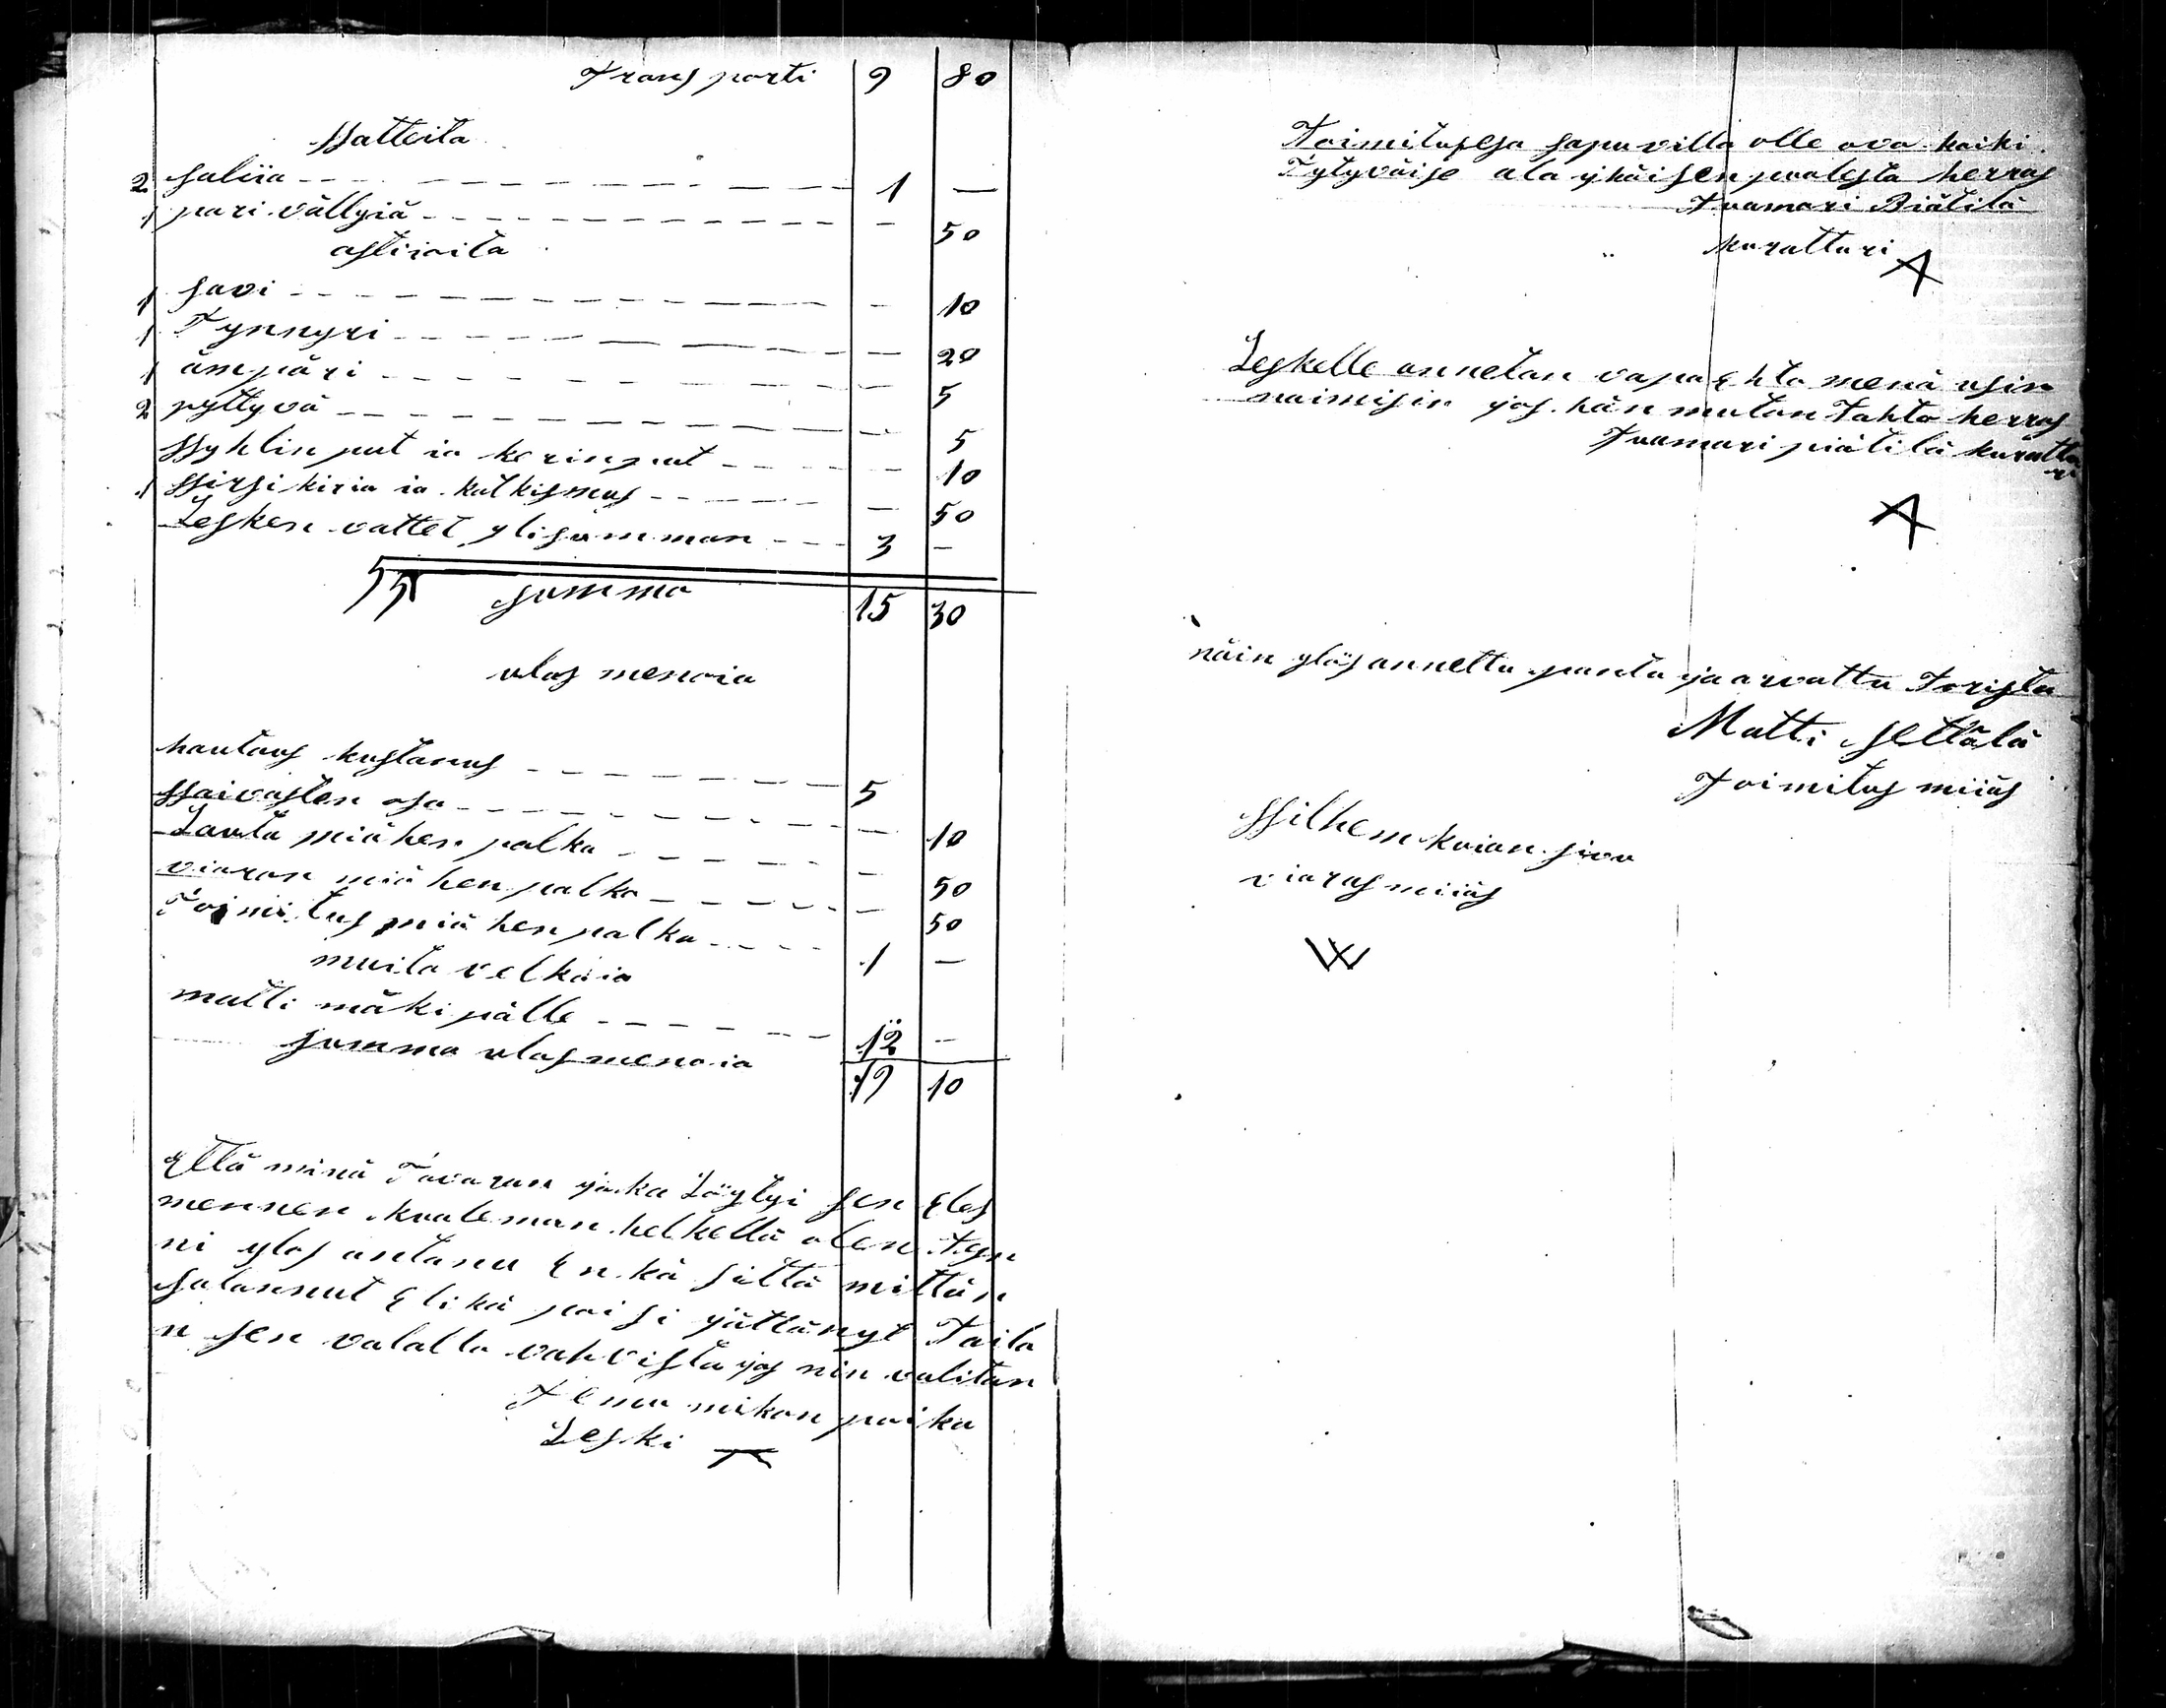 Transporti 9 80
Watteita
2 saliia 1 —
1 pari vällyiä - 50
astioita
1 savi - 10
1 Tynnyri - 20
1 ämpäri - 5
2 pyttyvä - 5
Wyhlinput ia kerinput - 10
1 Wirsikiria ia katkismus - 50
Lesken vattet ylisumman 3 -
summa 15 30
ulos menoia
hautaus kustanus 5
Waivasten osa - 10
Lautä miähen palka - 50
viaran miähen palka - 50
Toimitus miähen palka 1 —
muita velkoia
matti mäkipälle 12 -
summa ulosmenoia 19 10
Että minä Tavaran joka Löytyi sen Eles
mennen kualeman helkellä olen Teyn
ni ylos antanu En kä siittä mittän
salannut Elikä poisi jättänyt Taita
n sen valalla vahvista jos nin valitan
Temu mikon poika
Leski
Toimituxesa sapuvilla olle ova kaiki
Tytyväise ala ijkäisen puolesta herras
Tuamari Piätilä
kurattari A
Leskelle annetan vapa Ehto menä usin
naimisin jos hän mutan Tahto herras
Tuamari piätilä kuratta
ri
A
näin ylös annettu pantu ja arvattu Torista
Matti settälä
Toimitus miiäs
Wilhem koian sivu
viaras miiäs
W